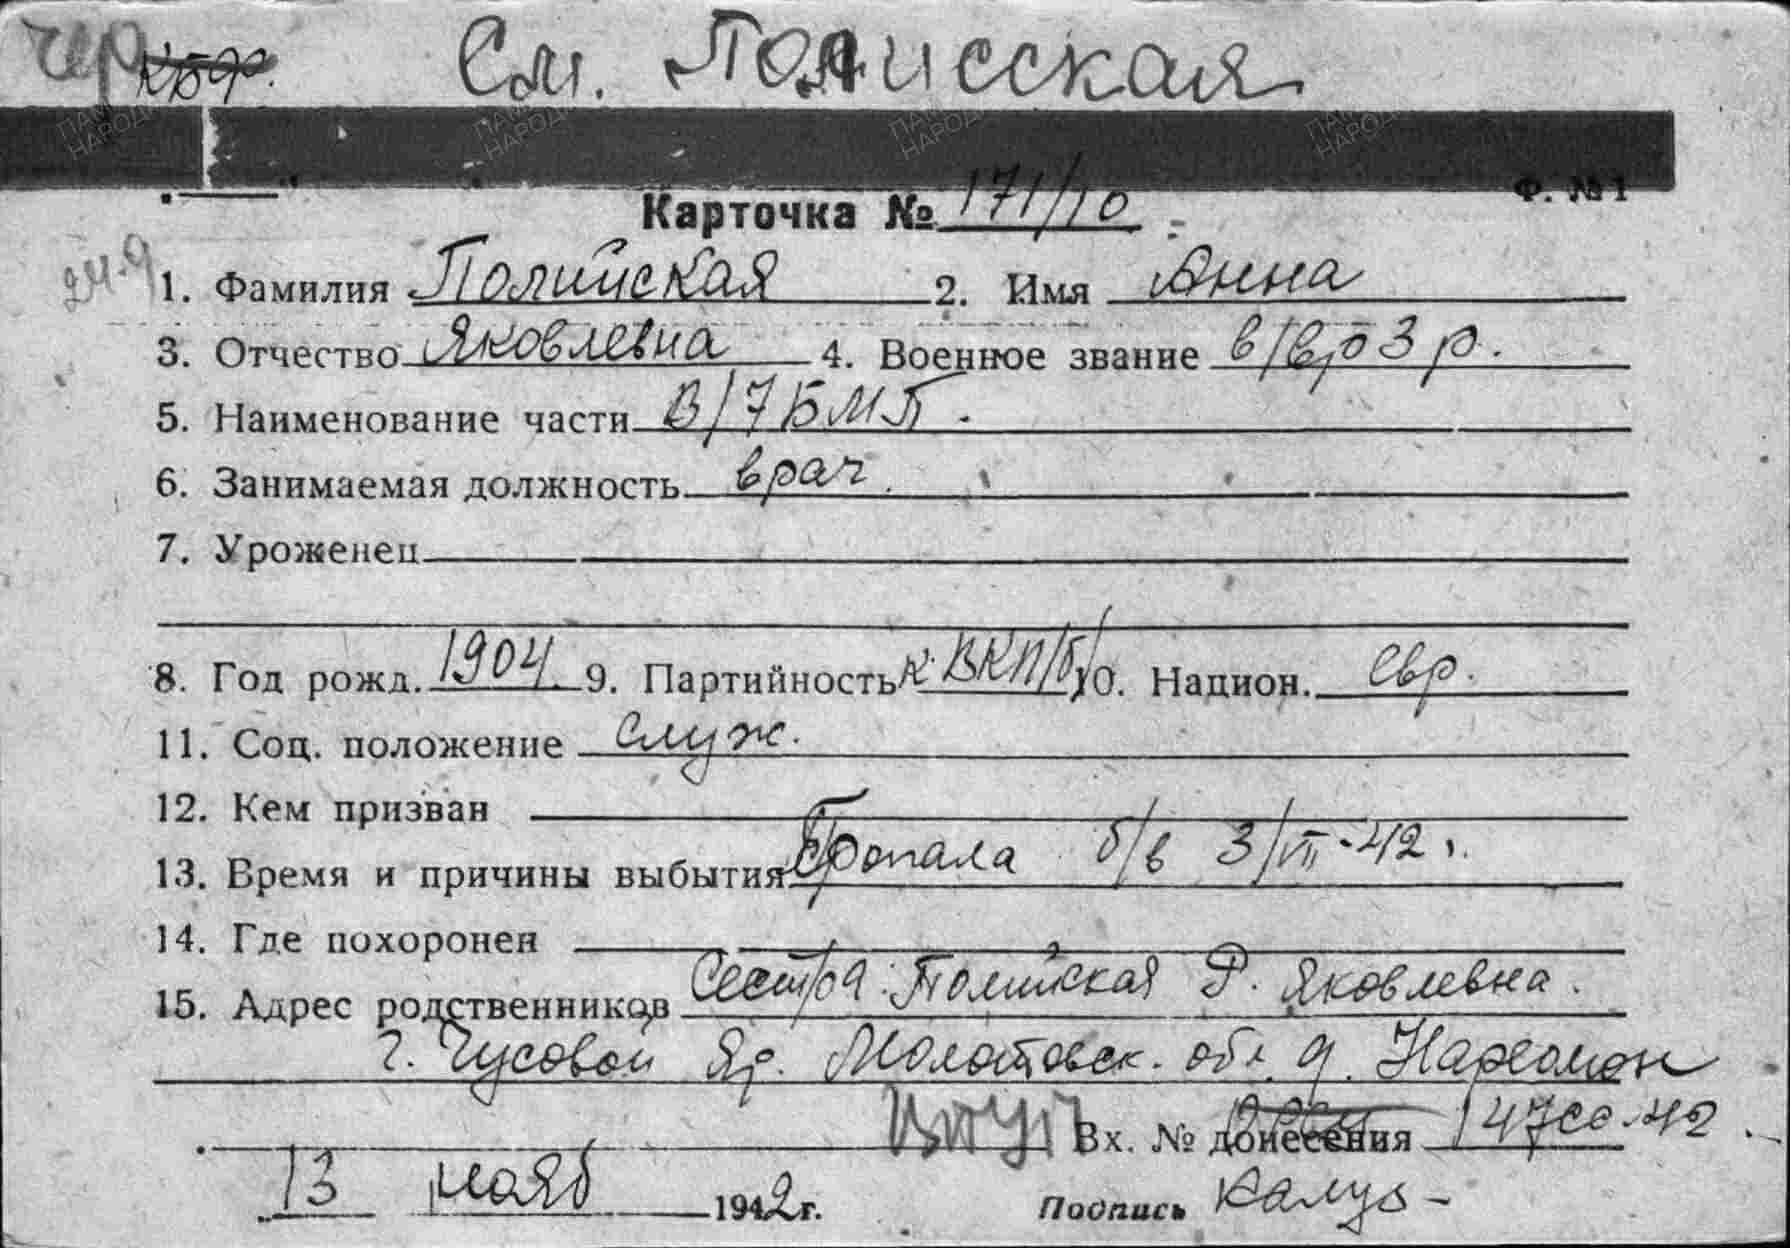 Чер КБФ. См. Полисская
Ф. № 1
Карточка № 171/10
24.9
1. Фамилия Полийская 2. Имя Анна
3. Отчество Яковлевна 4. Военное звание в/вр 3 р.
5. Наименование части В/7 БМП.
6. Занимаемая должность врач.
7. Уроженец
8. Год рожд. 1904 9. Партийность к. ВКП/б/ 10. Национ. Евр.
11. Соц. положение служ.
12. Кем призван
13. Время и причины выбытия Пропала б/в 3/VII-42 г.
14. Где похоронен
15. Адрес родственников Сестра: Полийская Р. Яковлевна.
г. Чусовой Молотовск. обл. д.
Вх. № донесения 147сс-42
13 нояб 1942 г. Подпись